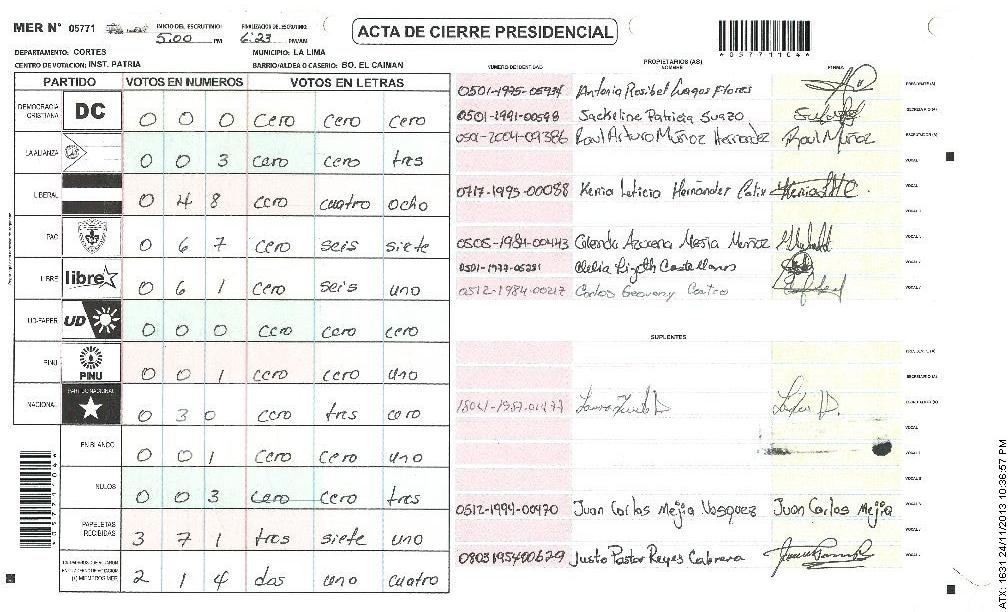 MER N° 05771
INICIO DEL ESCRUTINIO: 5:00 PM
FINALIZACION DE ESCRUTINIO: 6:23 PM/AM
ACTA DE CIERRE PRESIDENCIAL
DEPARTAMENTO: CORTES
MUNICIPIO: LA LIMA
CENTRO DE VOTACION: INST. PATRIA
BARRIO/ALDEA O CASERIO: BO. EL CAIMAN
PARTIDO VOTOS EN NUMEROS VOTOS EN LETRAS
DEMOCRACIA CRISTIANA DC 0 0 0 cero cero cero
LA ALIANZA 0 0 3 cero cero tres
LIBERAL 0 4 8 cero cuatro ocho
PAC 0 6 7 cero seis siete
LIBRE libre 0 6 1 cero seis uno
UD-FAPER UD 0 0 0 cero cero cero
PINU PINU 0 0 1 cero cero uno
NACIONAL PARTIDO NACIONAL 0 3 0 cero tres cero
EN BLANCO 0 0 1 cero cero uno
NULOS 0 0 3 cero cero tres
PAPELETAS RECIBIDAS 3 7 1 tres siete uno
2 1 4 dos uno cuatro
NUMERO DE IDENTIDAD
PROPIETARIOS (AS)
NOMBRE
FIRMA
0501-1975-05934 Antonia Rosibel Lagos Flores PRESIDENTE (A)
0501-1991-00598 Sackeline Patricia Suazo SECRETARIO (A)
0501-2004-09386 Raul Arturo Muñoz Hernandez Raul Muñoz ESCRUTADOR (A)
VOCAL
0717-1995-00088 Kenia Leticia Hernández VOCAL
VOCAL
0505-1984-00443 Azucena Mesia Muñoz VOCAL
0501-1977-05281 Lizeth Castellanos VOCAL
0512-1984-00217 Carlos Geovany Castro VOCAL
SUPLENTES
PRESIDENTE (A)
SECRETARIO (A)
ESCRUTADOR (A)
VOCAL
VOCAL
VOCAL
0512-1994-00470 Juan Carlos Mejia Vasquez Juan Carlos Mejia VOCAL
0803195400629 Justo Pastor Reyes Cabrera VOCAL
ATX: 1631 24/11/2013 10:36:57 PM